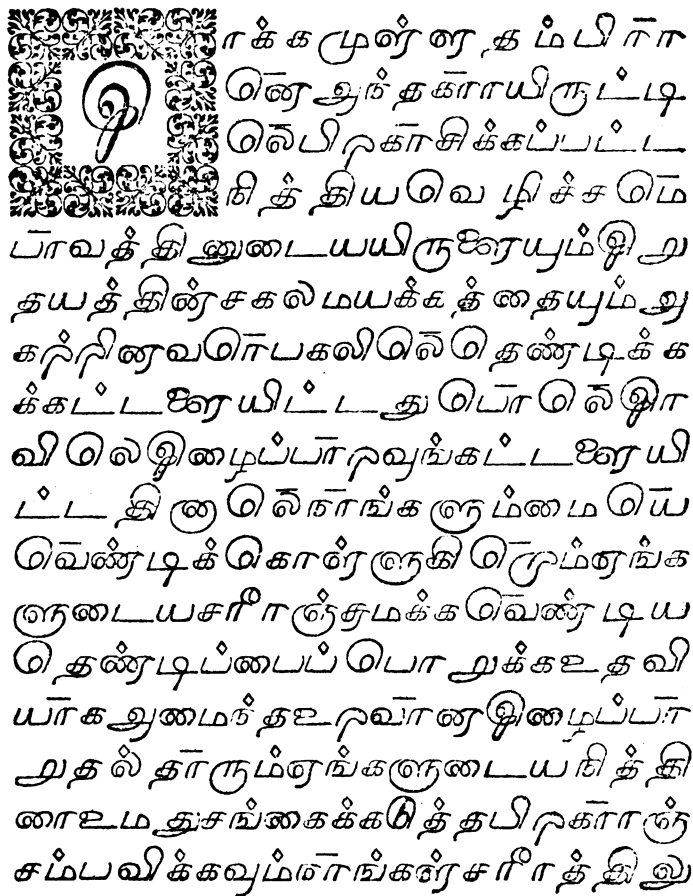 இரக்கமுள்ள தம்பிரா
னெ அந்தகாரயிருட்டி
லெபிறகாசிக்கப்பட்ட
நித்தியவெழிச்சமெ
பாவத்தினுடையயிருளையும்இறு
தயத்தின்சகலமயக்கத்தையும்அ
கற்றினவரெபகலிலெதெண்டிக்க
க்கட்டளையிட்டதுபொலெஇரா
விலெஇழைப்பாறவுங்கட்டளையி
ட்டதினாலெநாங்களும்மையெ
வெண்டிக்கொள்ளுகிறொம்எங்க
ளுடையசரீரஞ்சுமக்கவெண்டிய
தெண்டிப்பைப் பொறுக்கஉதவி
யாகஅமைந்தஉறவானஇழைப்பா
றுதல் தாரும்எங்களுடையநித்தி
ரைஉமதுசங்கைக்கடுத்தபிறகாரஞ்
சம்பவிக்கவும்நாங்கள்சரீரத்திலு